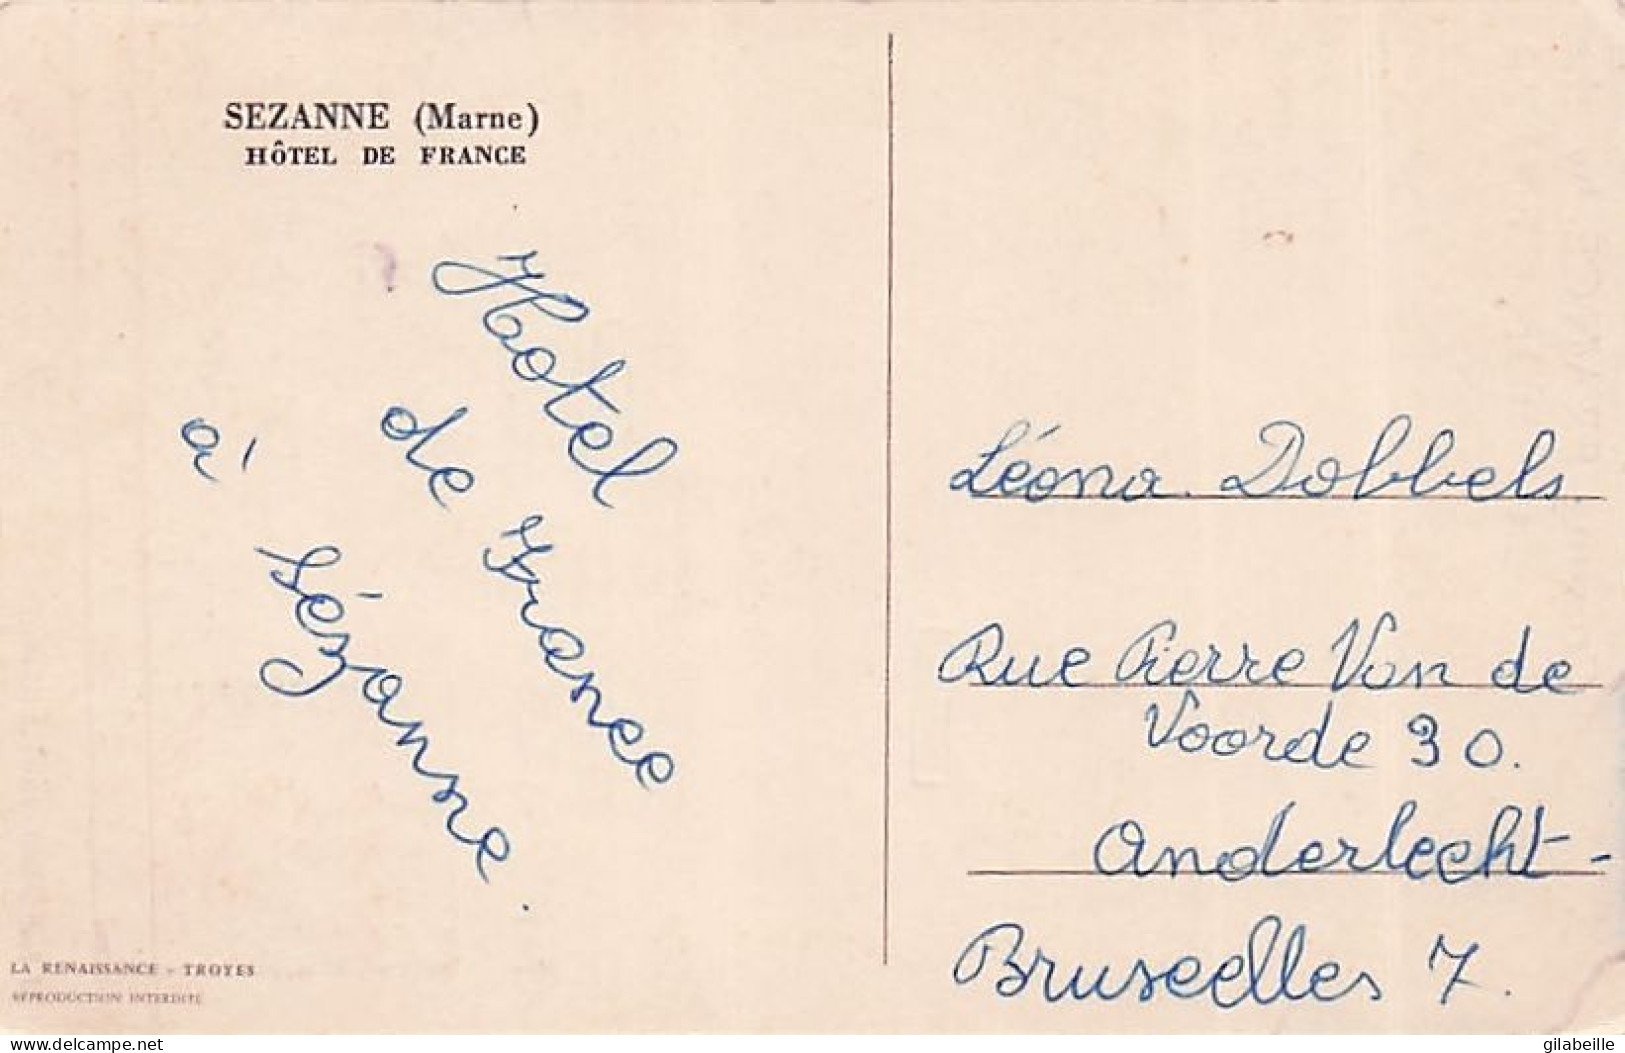 SEZANNE (Marne)
HÔTEL DE FRANCE
Hotel
de France
à Sézanne.
LA RENAISSANCE - TROYES
REPRODUCTION INTERDITE
Léona Dobbels
Rue Pierre Van de
Voorde 30.
Anderlecht-
Bruxelles 7.
delcampe.net
gilabeille